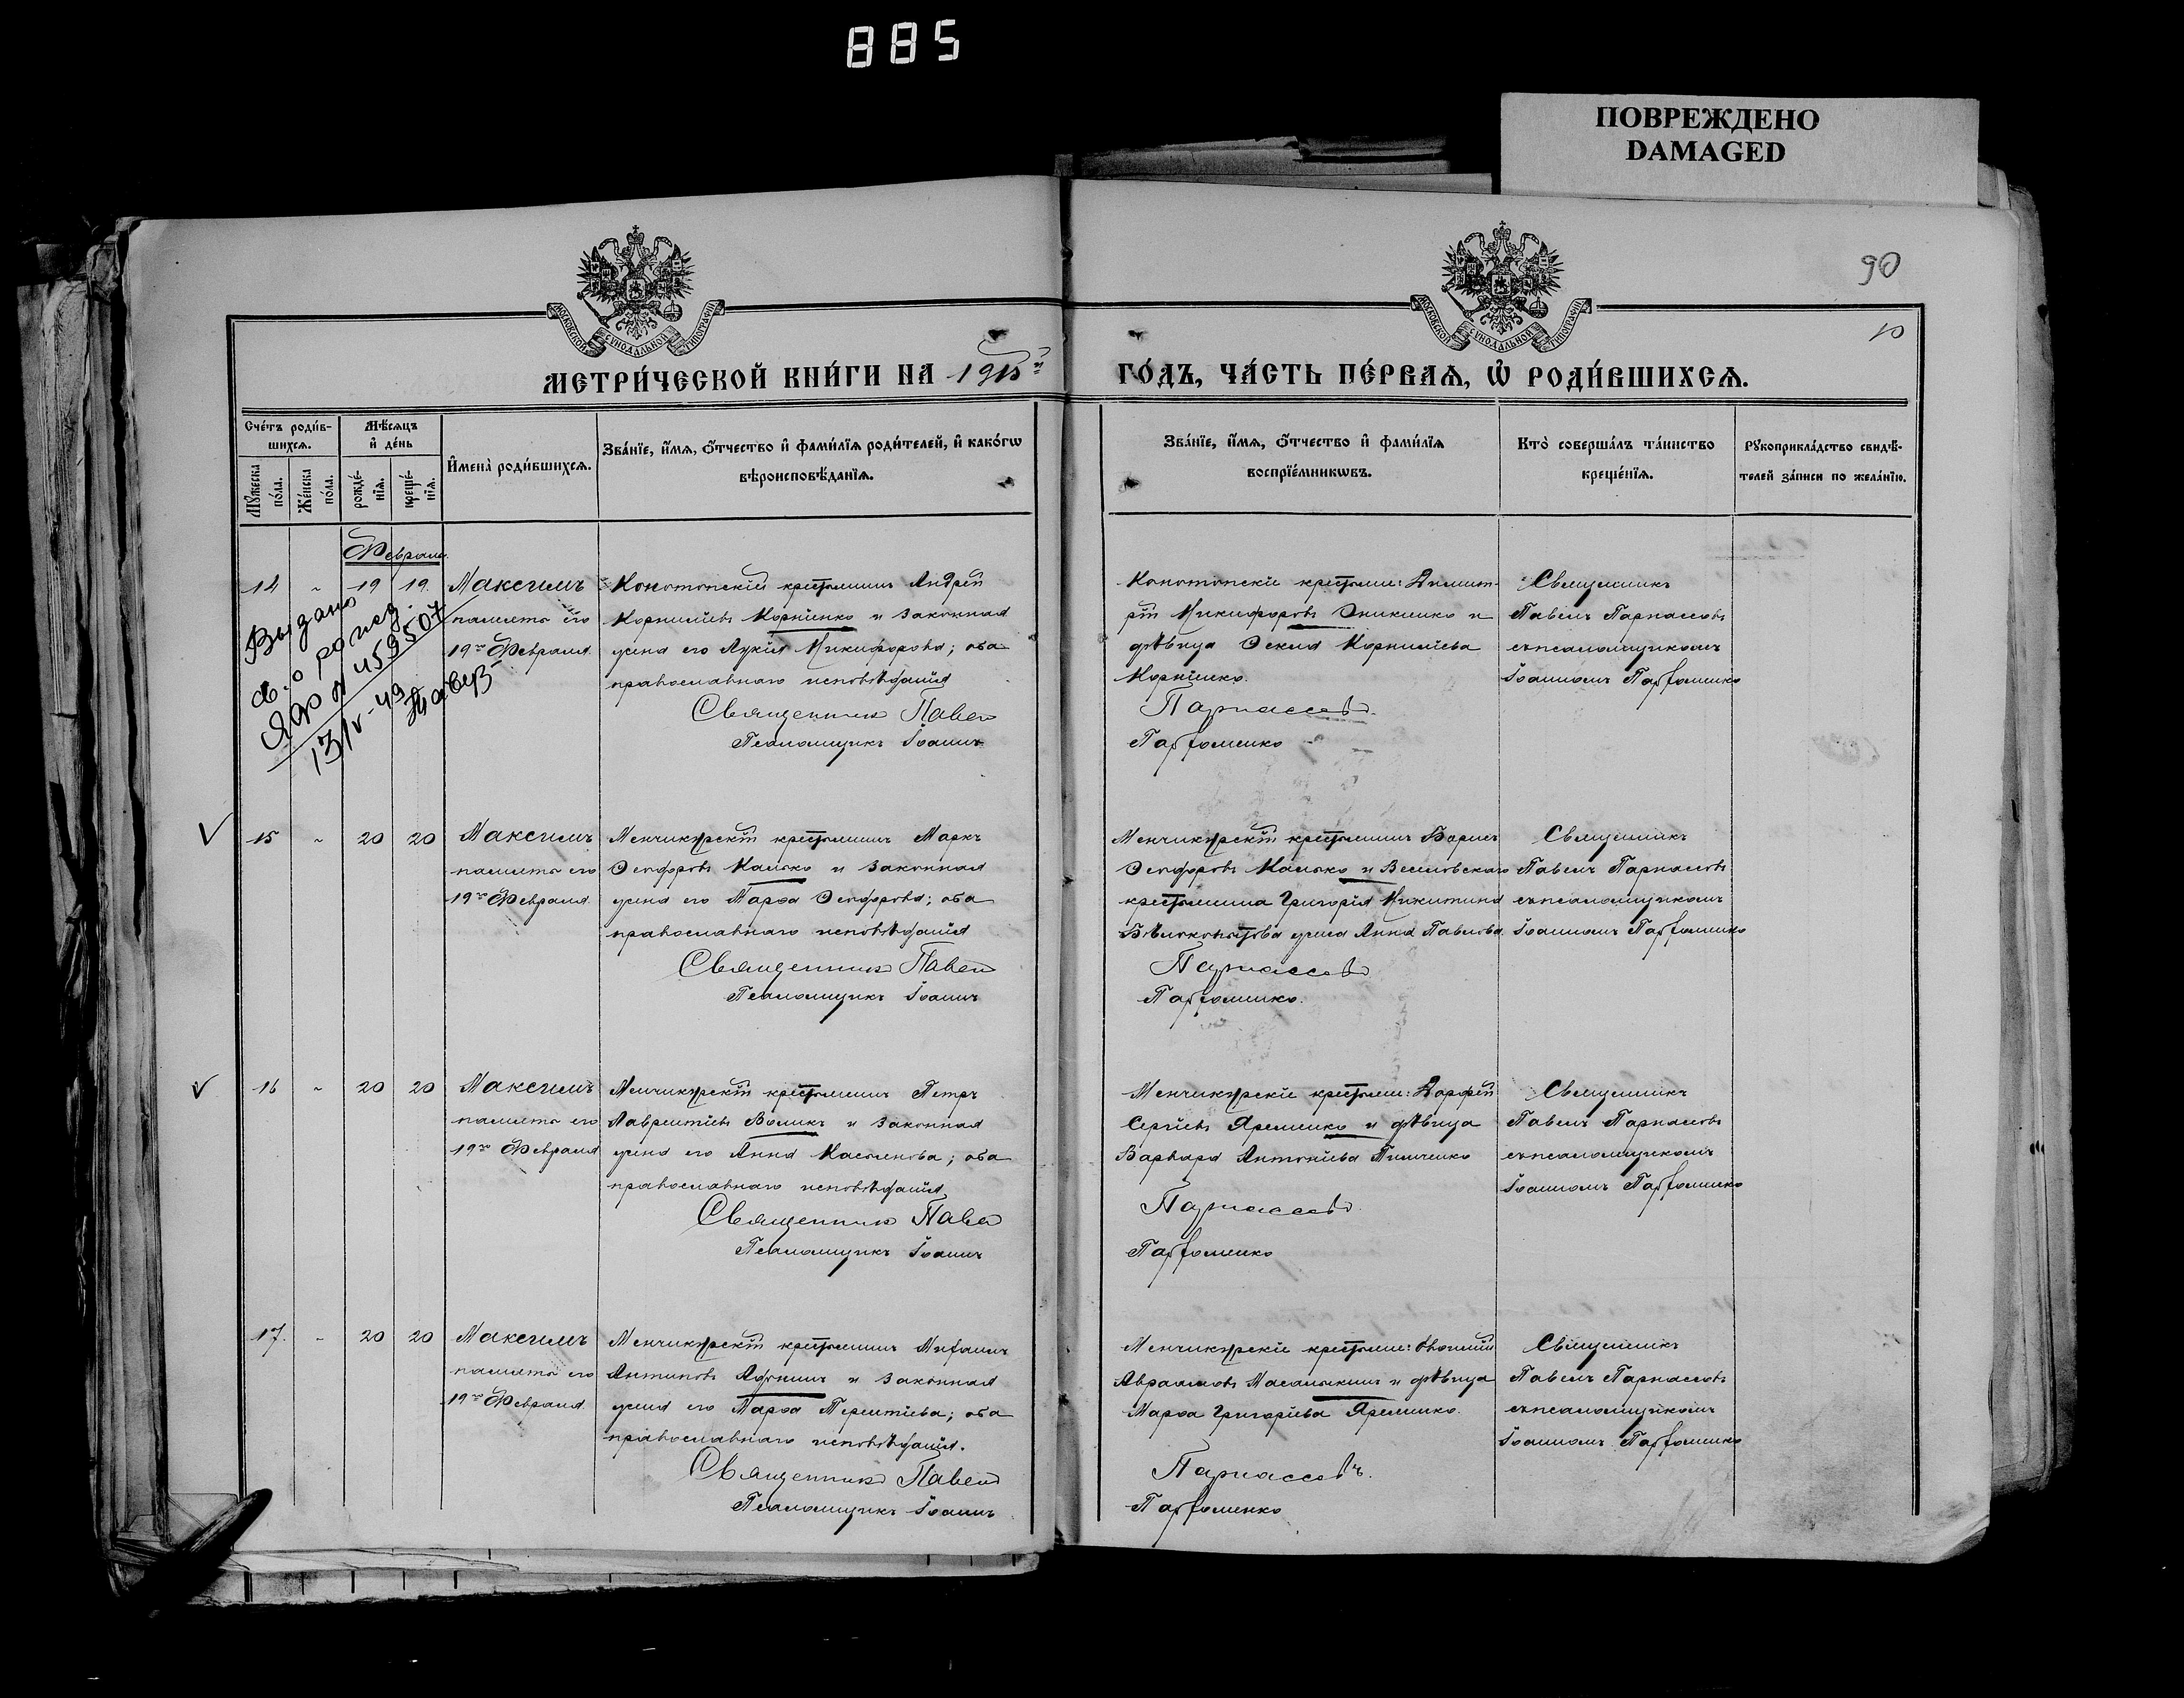 885
ПОВРЕЖДЕНО
DAMAGED
90
10
МОСКОВСКОЙ СѴНОДАЛЬНОЙ ТИПОГРАФІИ
МОСКОВСКОЙ СѴНОДАЛЬНОЙ ТИПОГРАФІИ
МЕТРИ́ЧЕСКОЙ КНИ́ГИ НА 1915й
ГО́ДЪ, ЧА́СТЬ ПЕ́РВАЯ, Ѡ҆ РОДИ́ВШИХСЯ.
Сче́тъ роди́в-
шихся.
Мѣ́сяцъ
и҆ де́нь
Мꙋ́жеска
по́ла.
Же́нска
по́ла.
рожде́-
нїя.
креще́-
нїя.
И҆мена̀ роди́вшихся.
Зва́нїе, и҆́мя, ѻ҆́тчество и҆ фами́лїя роди́телей, и҆ како́гѡ
вѣроисповѣ́данїя.
Зва́нїе, и҆́мя, ѻ҆́тчество и҆ фами́лїя
воспрїе́мникѡвъ.
Кто̀ соверша́лъ та́инство
креще́нїя.
Рꙋкоприкла́дство свидѣ́-
телей за́писи по жела́нїю.
Февраль.
14 " 19 19. Максимъ
память его
19го Февраля.
Конотопскій крестьянинъ Андрей
Корнилiевъ Корніенко и законная
жена его Лукія Никифорова; оба
православнаго исповѣданія
Священникъ Павелъ
Псаломщикъ Іоаннъ
Конотопскіе крестьяне: Димит-
рій Никифоровъ Оникіенко и
дѣвица Ѳекла Корниліева
Корніенко.
Парнассовъ.
Парфоменко
Священникъ
Павелъ Парнассовъ
съ псаломщикомъ
Іоанномъ Парфоменко
Выдано
св. о рожд.
ЯФ № 459507
13/V-49
15 " 20 20 Максимъ
память его
19го Февраля.
Менчикурскій крестьянинъ Маркъ
Ѳеодоровъ Калько и законная
жена его Марѳа Ѳеодорова; оба
православнаго исповѣданія
Священникъ Павелъ
Псаломщикъ Іоаннъ
Менчикурскій крестьянинъ Борисъ
Ѳеодоровъ Калько и Веселовскаго
крестьянина Григорія Никитина
Бѣлоконытова жена Анна Павлова.
Парнассовъ
Парфоменко.
Священникъ
Павелъ Парнассовъ
съ псаломщикомъ
Іоанномъ Парфоменко
16 " 20 20 Максимъ
память его
19го Февраля
Менчикурскій крестьянинъ Петръ
Лаврентіевъ Воликъ и законная
жена его Анна Касьянова; оба
православнаго исповѣданія
Священникъ Павелъ
Псаломщикъ Іоаннъ
Менчикурскіе крестьяне: Дорофей
Сергіевъ Яременко и дѣвица
Варвара Антоніева Пинченко
Парнассовъ.
Парфоменко
Священникъ
Павелъ Парнассовъ
съ псаломщикомъ
Іоанномъ Парфоменко
17. " 20 20 Максимъ
память его
19го Февраля.
Менчикурскій крестьянинъ Митрофанъ
Антиповъ Афонинъ и законная
жена его Марѳа Терентіева; оба
православнаго исповѣданія.
Священникъ Павелъ
Псаломщикъ Іоаннъ
Менчикурскіе крестьяне:
Авраамовъ Масалыкинъ и дѣвица
Марѳа Григоріева Яременко.
Парнассовъ.
Парфоменко
Священникъ
Павелъ Парнассовъ
съ псаломщикомъ
Іоанномъ Парфоменко